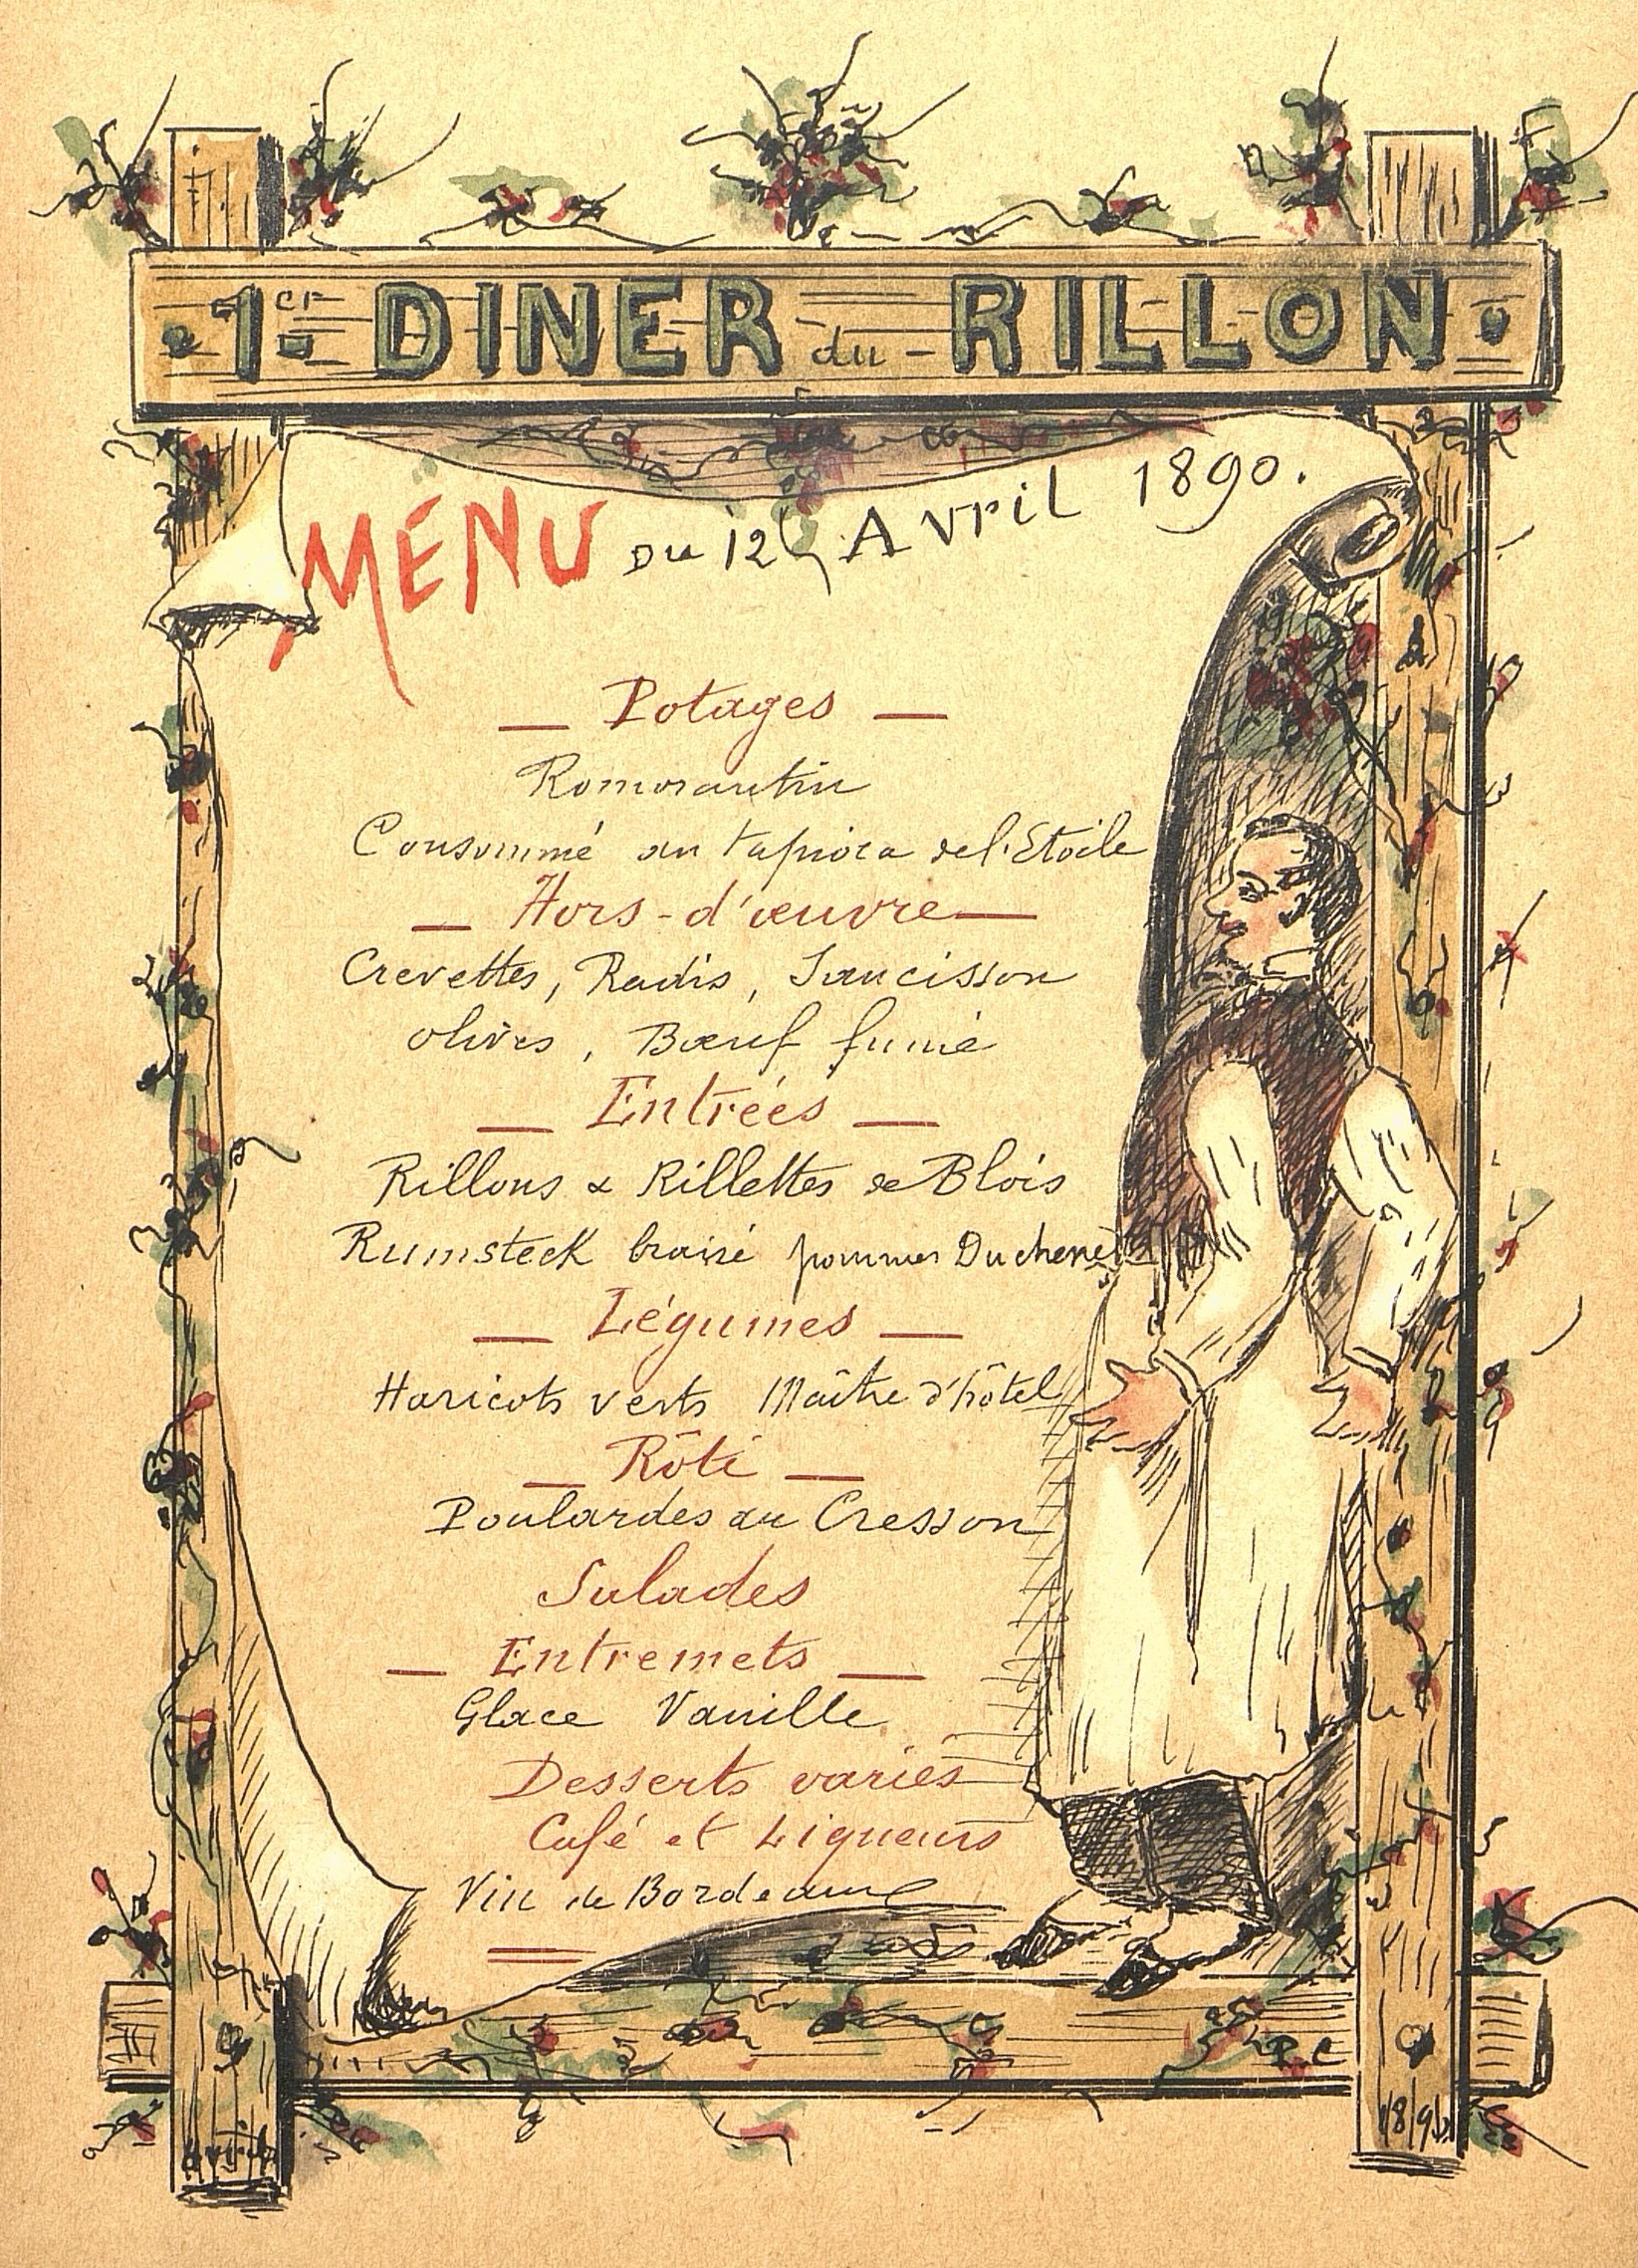 1er DINER du RILLON
MENU du 12 Avril 1890.
— Potages —
Romorantin
Consommé au tapioca de l'Etoile
— Hors-d'œuvre —
Crevettes, Radis, Saucisson
Olives, Bœuf fumé
— Entrées —
Rillons & Rillettes de Blois
Rumsteck braisé pommes Duchene
— Légumes —
Haricots verts Maître d'hôtel
— Rôti —
Poulardes au Cresson
Salades
— Entremets —
Glace Vanille
Desserts variés
Café et Liqueurs
Vin de Bordeaux
P.C